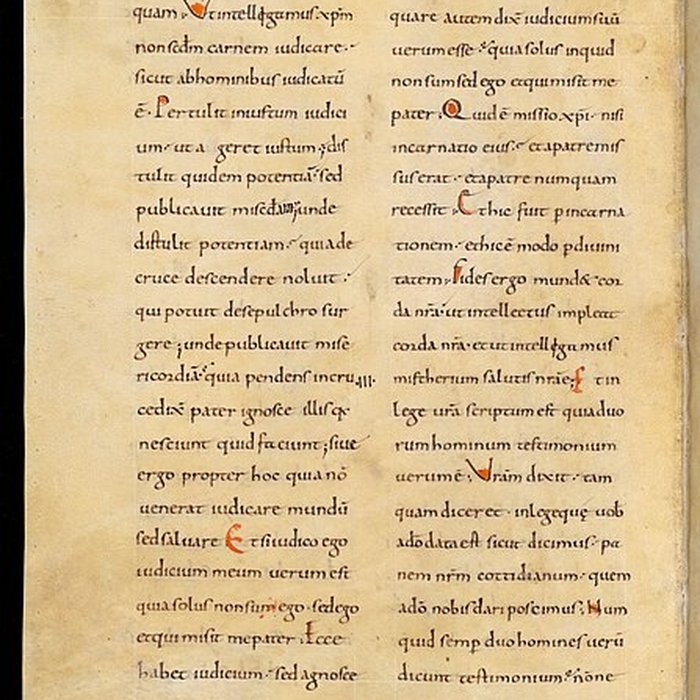 quam. Ut intellegamus xp̄m
non sedm̄ carnem iudicare.
sicut ab hominibus iudicatū
ē. Pertulit iniustum iudici
um. ut a geret iustum; dis
tulit quidem potentiā. sed
publicauit unde
distulit potentiam. quia de
cruce descendere noluit.
qui potuit de sepulchro sur
gere; unde publicauit mise
ricordiā. quia pendens in cru
ce dix̄ pater ignosce illis q
nesciunt quid faciunt; siue
ergo propter hoc quia nō
uenerat iudicare mundū
sed saluare Et si iudico ego
iudicium meum uerum est
quia solus non sum ego. sed ego
et qui misit me pater. Ecce
habet iudicium. sed agnosce
quare autem dix̄ iudicium suū
uerum esse. quia solus inquid
non sum sed ego et qui misit me
pater. Quid ē missio xp̄i. nisi
incarnatio eius. et a patre mis
sus erat. et a patre numquam
recessit. Et hic fuit p incarna
tionem. et hic ē modo p diuini
tatem. Fides ergo mund& cor
da nr̄a. ut intellectus impleat
corda nr̄a. et ut intellegamus
mistherium salutis nr̄ae; Et in
lege ur̄a scriptum est quia duo
rum hominum testimonium
uerum ē. Ur̄am dixit. tam
quam diceret. in lege quę uob̄
a dō data est sicut dicimus. pa
nem nr̄m cottidianum. quem
a dō nobis dari poscimus; Num
quid semp duo homines uerū
dicunt testimonium. none